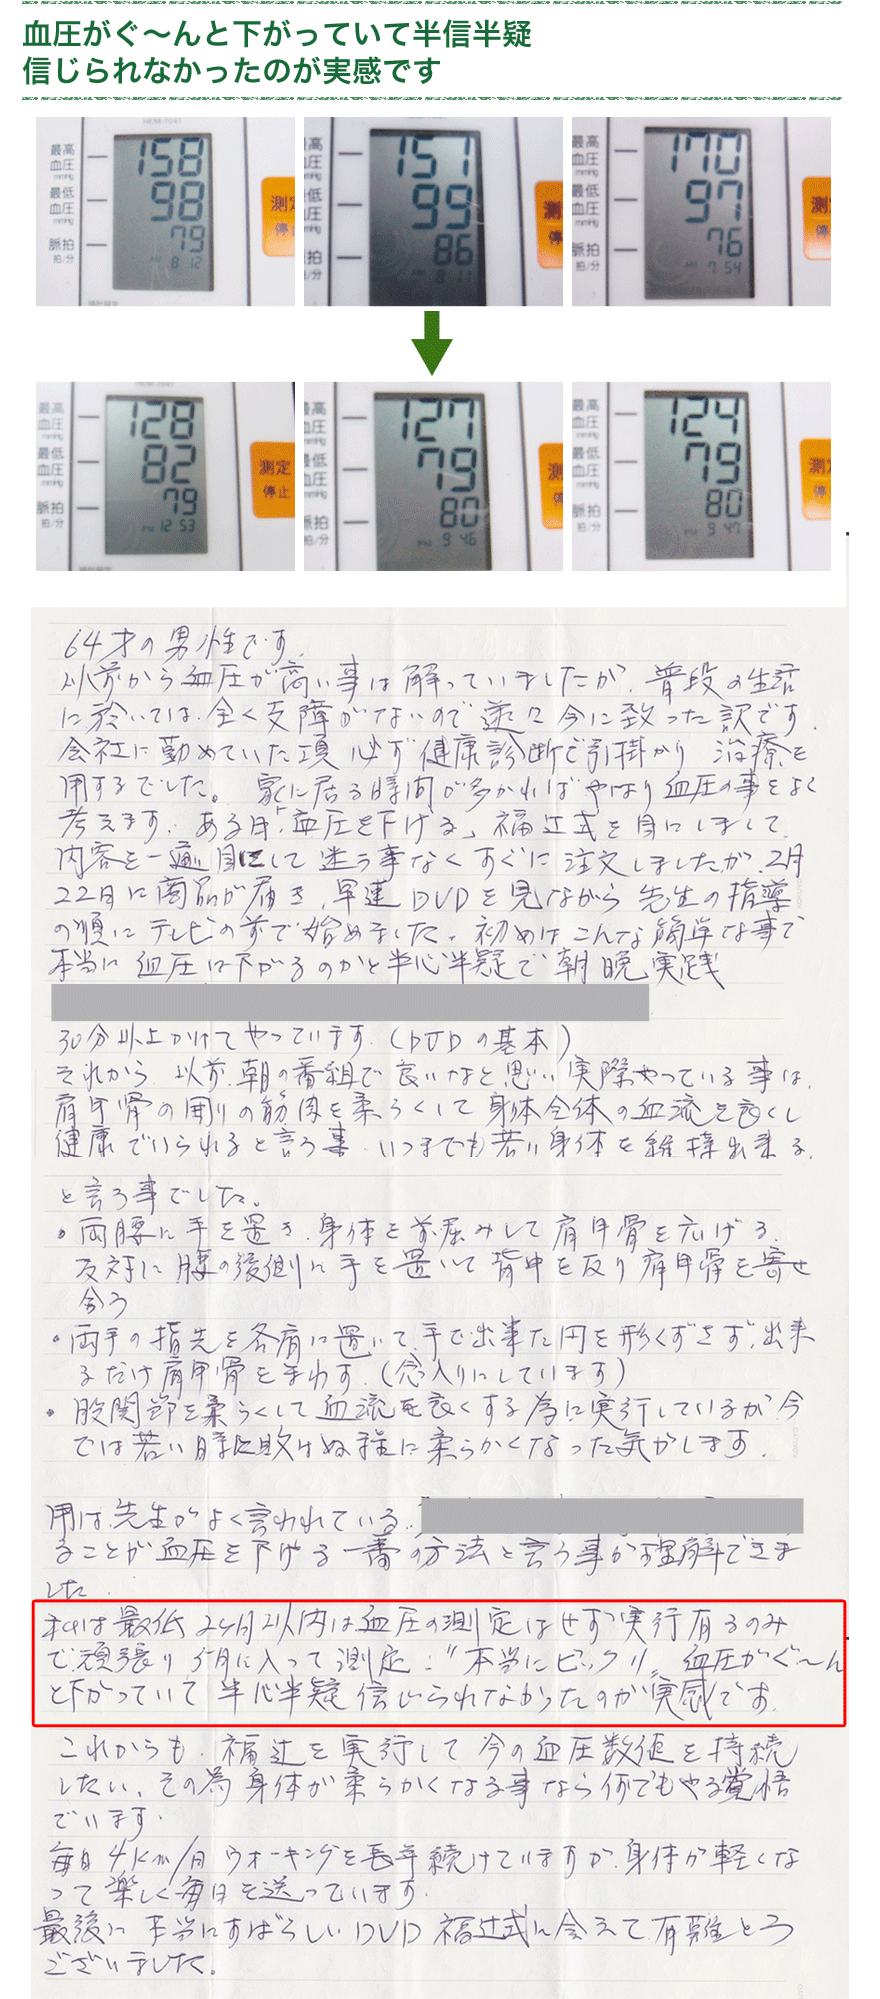 血圧がぐ〜んと下がっていて半信半疑
信じられなかったのが実感です
HEM-7041
最高血圧mmHg 158
最低血圧mmHg 98
脈拍拍/分 79
8 12
測定
停止
最高血圧mmHg 157
最低血圧mmHg 99
脈拍拍/分 86
8 11
測定
停止
最高血圧mmHg 170
最低血圧mmHg 97
脈拍拍/分 76
7 54
測定
停止
HEM-7041
最高血圧mmHg 128
最低血圧mmHg 82
脈拍拍/分 79
PM 12 53
測定
停止
最高血圧mmHg 127
最低血圧mmHg 79
脈拍拍/分 80
PM 9 46
測定
停止
最高血圧mmHg 124
最低血圧mmHg 79
脈拍拍/分 80
PM 9 47
測定
停止
64才の男性です。
以前から血圧が高い事は解っていましたが、普段の生活
に於いては、全く支障がないので延々今に致った訳です。
会社に勤めていた頃 必ず健康診断で引掛かり 治療を
用するでした。家に居る時間が多かればやはり血圧の事をよく
考えます。ある日「血圧を下げる」福辻式を目にしまして、
内容を一通り目にして迷う事なくすぐに注文しましたが、2月
22日に商品が届き、早速DVDを見ながら先生の指導
の順にテレビの前で始めました。初めはこんな簡単な事で
本当に血圧は下がるのかと半心半疑で朝晩実践
30分以上かけてやっています。(DVDの基本)
それから、以前、朝の番組で良いなと思い実際やっている事は、
肩甲骨の周りの筋肉を柔らくして身体全体の血流を良くし
健康でいられると言う事、いつまでも若い身体を維持出来る、
と言う事でした。
・両腰に手を置き、身体を前屈みして肩甲骨を広げる。
反対に腰の後側に手を置いて背中を反り肩甲骨を寄せ
合う
・両手の指先を各肩に置いて、手で出来た円を形くずさず、出来
るだけ肩甲骨をまわす。(念入りにしています)
・股関節を柔らくして血流を良くする為に実行しているが、今
では若い時に敗けぬ程に柔らかくなった気がします。
用は、先生がよく言われている、
ることが血圧を下げる一番の方法と言う事が理解できま
した。
私は最低2ヶ月以内は血圧の測定はせず実行有るのみ
で頑張り 5月に入って測定:"本当にビックリ"、血圧がぐ〜ん
と下がっていて半心半疑 信じられなかったのが実感です。
これからも、福辻を実行して今の血圧数値を持続
したい、その為身体が柔らかくなる事なら何でもやる覚悟
でいます。
毎日4km/日ウオーキングを長年続けていますが、身体が軽くな
って楽しく毎日を送っています。
最後に本当にすばらしいDVD福辻式に会えて有難とう
ございました。